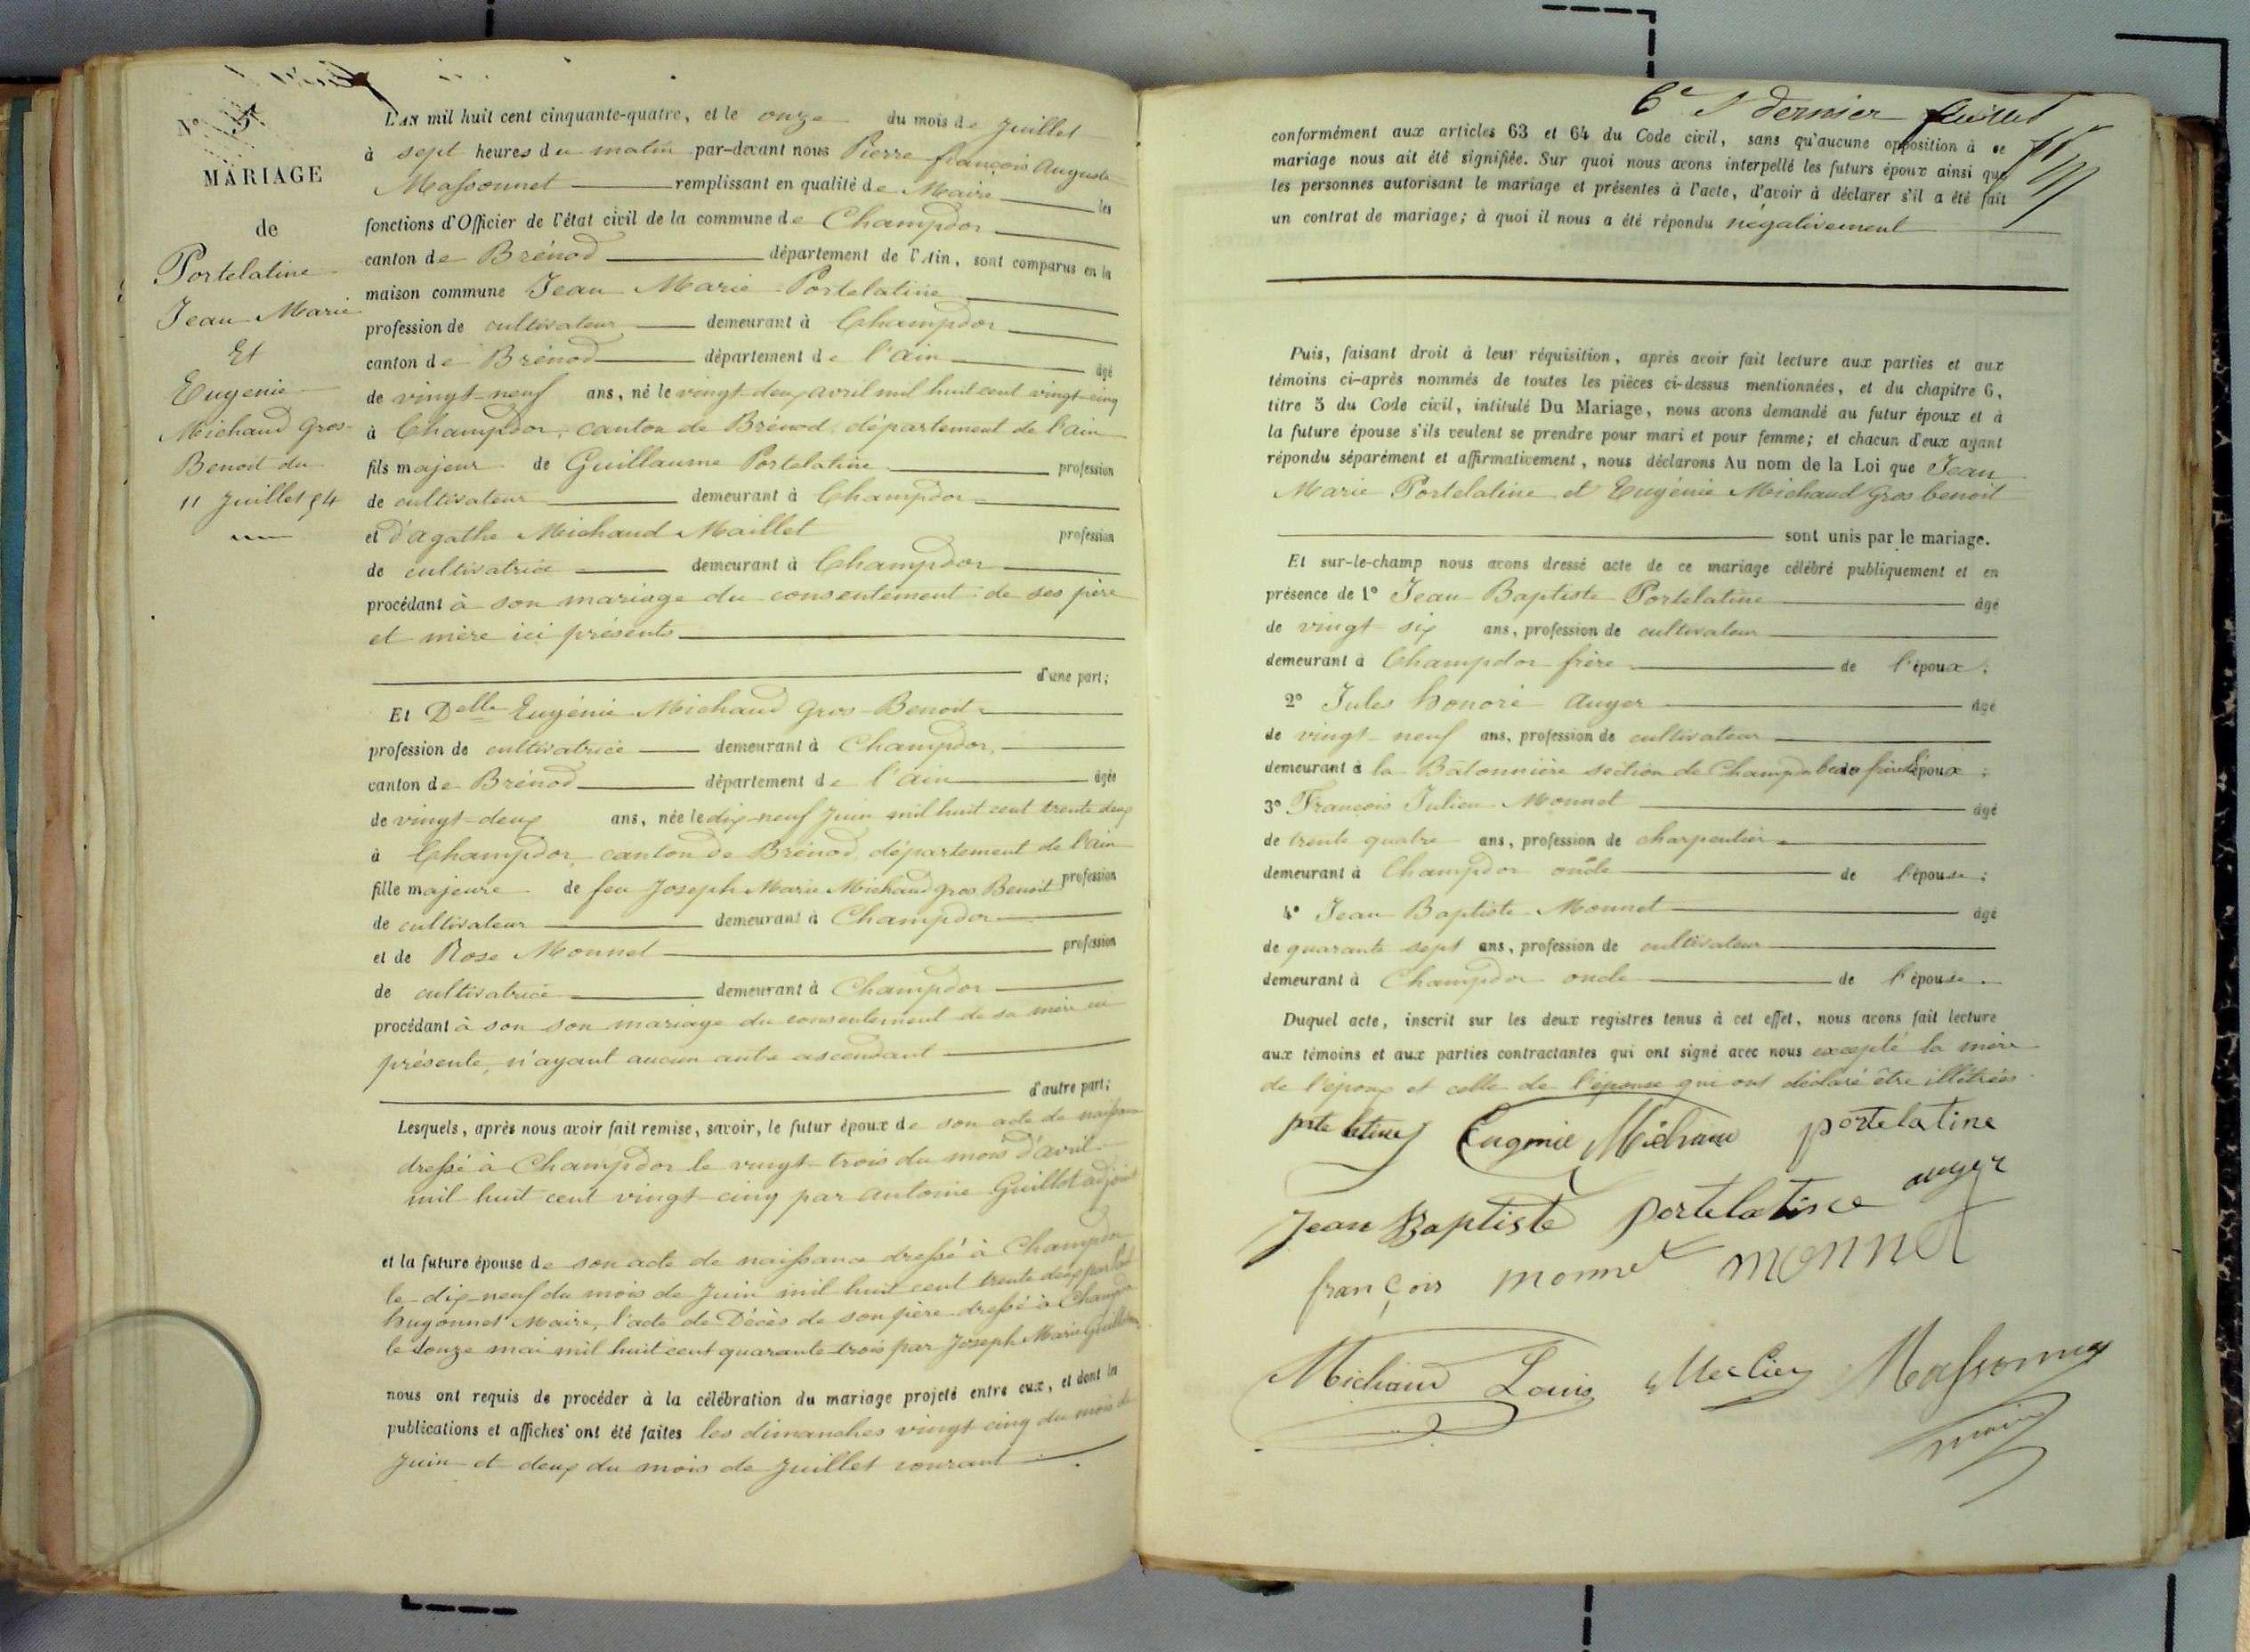 N° 5
MARIAGE
de
Portelatine
Jean Marie
Et
Eugenie
Michaud Gros
Benoit du
11 Juillet 54
L'AN mil huit cent cinquante-quatre, et le onze du mois de Juillet
à sept heures du matin par-devant nous Pierre françois Auguste
Massonnet remplissant en qualité de Maire les
fonctions d'Officier de l'état civil de la commune de Champdor
canton de Brénod département de l'Ain, sont comparus en la
maison commune Jean Marie Portelatine
profession de cultivateur demeurant à Champdor
canton de Brénod département de l'ain âgé
de vingt-neuf ans, né le vingt-deux avril mil huit cent vingt-cinq
à Champdor, canton de Brénod, département de l'ain
fils majeur de Guillaume Portelatine profession
de cultivateur demeurant à Champdor
et d'agathe Michaud Maillet profession
de cultivatrice demeurant à Champdor
procédant à son mariage du consentement de ses père
et mère ici présents
d'une part;
Et Delle Eugénie Michaud Gros-Benoit
profession de cultivatrice demeurant à Champdor,
canton de Brénod département de l'ain âgée
de vingt-deux ans, née le dix-neuf Juin mil huit cent trente deux
à Champdor canton de Brénod, département de l'ain
fille majeure de feu Joseph Marie Michaud gros Benoit profession
de cultivateur demeurant à Champdor
et de Rose Monnet profession
de cultivatrice demeurant à Champdor
procédant à son son mariage du consentement de sa mère ici
présente, n'ayant aucun autre ascendant
d'autre part;
Lesquels, après nous avoir fait remise, savoir, le futur époux de son acte de naissance
dressé à Champdor le vingt-trois du mois d'avril
mil huit cent vingt-cinq par antoine Guillot adjoint
et la future épouse de son acte de naissance dressé à Champdor
le dix-neuf du mois de Juin mil huit cent trente deux par
hugonnet Maire, l'acte de Décès de son père dressé à Champdor
le douze mai mil huit cent quarante-trois par Joseph Marie
nous ont requis de procéder à la célébration du mariage projeté entre eux, et dont les
publications et affiches ont été faites les dimanches vingt-cinq du mois de
Juin et deux du mois de Juillet courant
6e & dernier feuillet
conformément aux articles 63 et 64 du Code civil, sans qu'aucune opposition à ce
mariage nous ait été signifiée. Sur quoi nous avons interpellé les futurs époux ainsi que
les personnes autorisant le mariage et présentes à l'acte, d'avoir à déclarer s'il a été fait
un contrat de mariage; à quoi il nous a été répondu négativement
Puis, faisant droit à leur réquisition, après avoir fait lecture aux parties et aux
témoins ci-après nommés de toutes les pièces ci-dessus mentionnées, et du chapitre 6,
titre 5 du Code civil, intitulé Du Mariage, nous avons demandé au futur époux et à
la future épouse s'ils veulent se prendre pour mari et pour femme; et chacun d'eux ayant
répondu séparément et affirmativement, nous déclarons Au nom de la Loi que Jean
Marie Portelatine et Eugénie Michaud Gros benoit
sont unis par le mariage.
Et sur-le-champ nous avons dressé acte de ce mariage célébré publiquement et en
présence de 1° Jean-Baptiste Portelatine âgé
de vingt-six ans, profession de cultivateur
demeurant à Champdor frère de l'époux;
2° Jules honoré Auger âgé
de vingt-neuf ans, profession de cultivateur
demeurant à la Batonnière section de Champdor beau frère de l'époux;
3° François Julien Monnet âgé
de trente quatre ans, profession de charpentier
demeurant à Champdor oncle de l'épouse;
4° Jean Baptiste Monnet âgé
de quarante sept ans, profession de cultivateur
demeurant à Champdor oncle de l'épouse.
Duquel acte, inscrit sur les deux registres tenus à cet effet, nous avons fait lecture
aux témoins et aux parties contractantes qui ont signé avec nous excepté la mère
de l'époux et celle de l'épouse qui ont déclaré être illétrées.
porte latine Eugenie Michaud portelatine
Jean Baptiste portelatine auger
françois monnet monnet
Michaud Louis Massonnet
maire